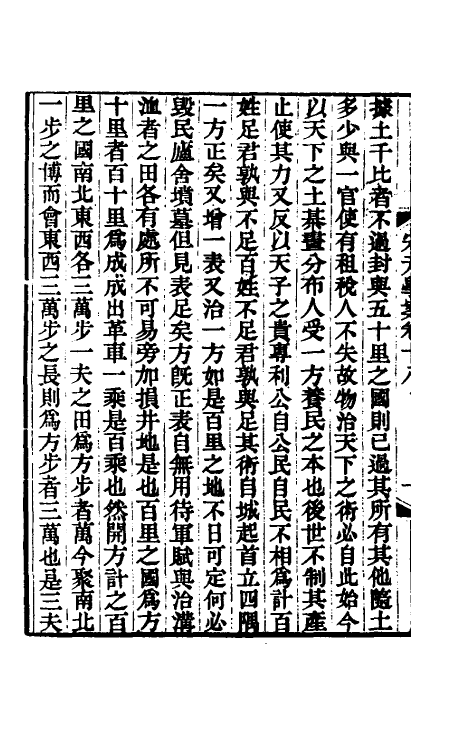 宋元學案卷十八
據土千比者不過封與五十里之國則已過其所有其他隨土
多少與一官使有租稅人不失故物治天下之術必自此始今
以天下之土棊畫分布人受一方養民之本也後世不制其產
止使其力又反以天子之貴專利公自公民自民不相爲計百
姓足君孰與不足百姓不足君孰與足其術自城起首立四隅
一方正矣又增一表又治一方如是百里之地不日可定何必
毀民廬舍墳墓但見表足矣方旣正表自無用待軍賦與治溝
洫者之田各有處所不可易旁加損井地是也百里之國爲方
十里者百十里爲成成出革車一乘是百乘也然開方計之百
里之國南北東西各三萬步一夫之田爲方步者萬今聚南北
一步之博而會東西三萬步之長則爲方步者三萬也是三夫